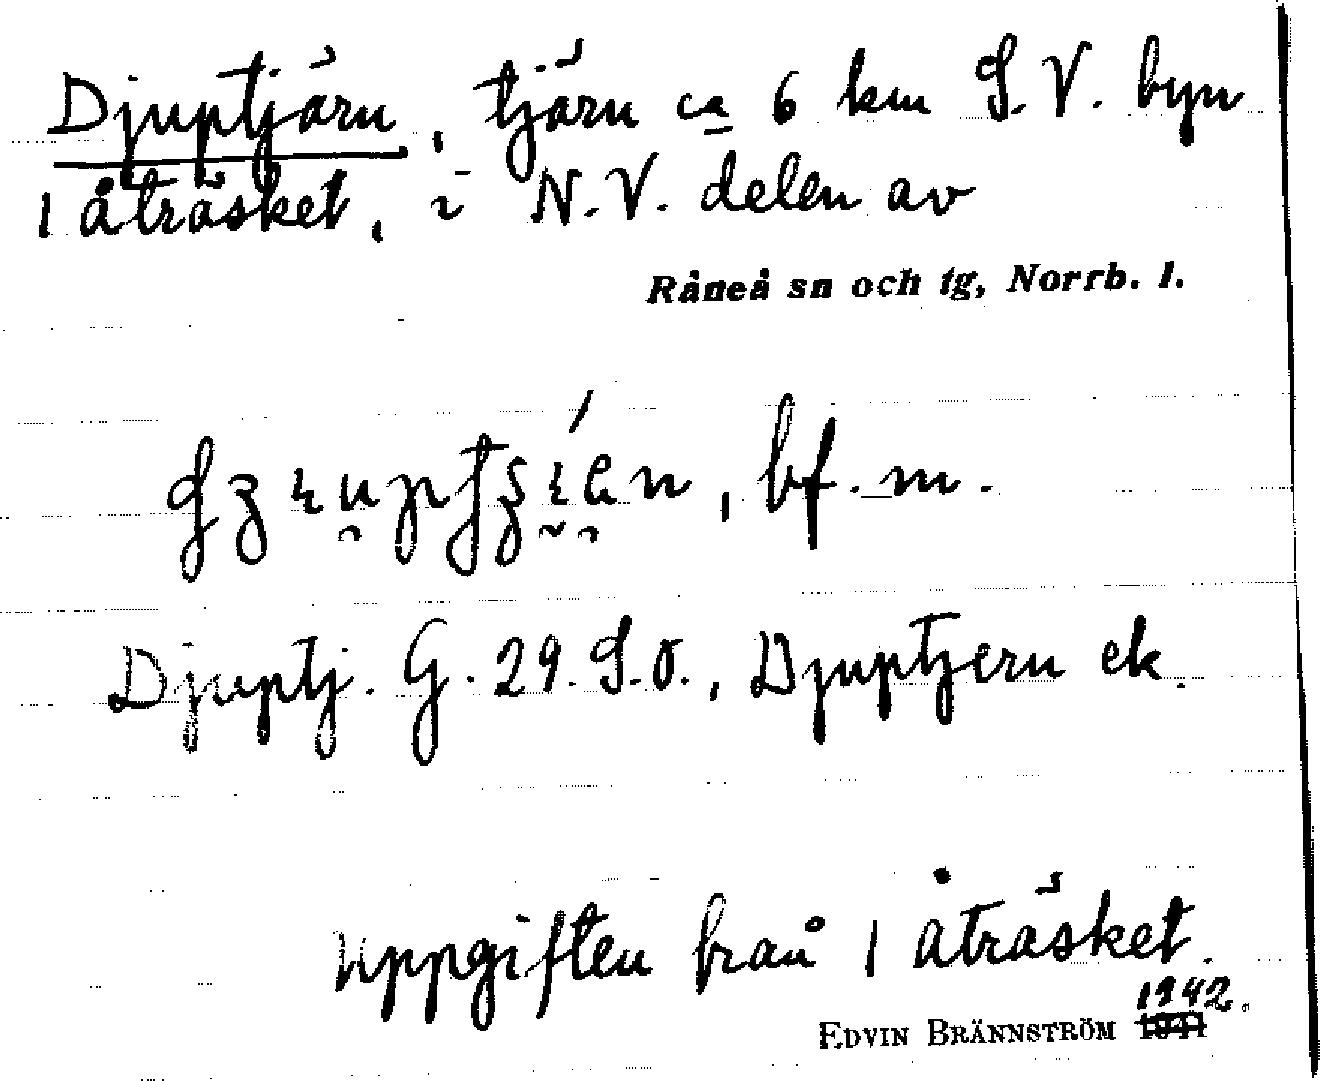 Djuptjärn, tjärn ca 6 km S.V. byn
1 åträsket, i N.V. delen av
Råneå sn och tg, Norrb. l.
bf. m.
Djuptj. G. 29. S.O., Djuptjern ek.
Uppgiften från 1 åträsket.
1942.
EDVIN BRÄNNSTRÖM 1941